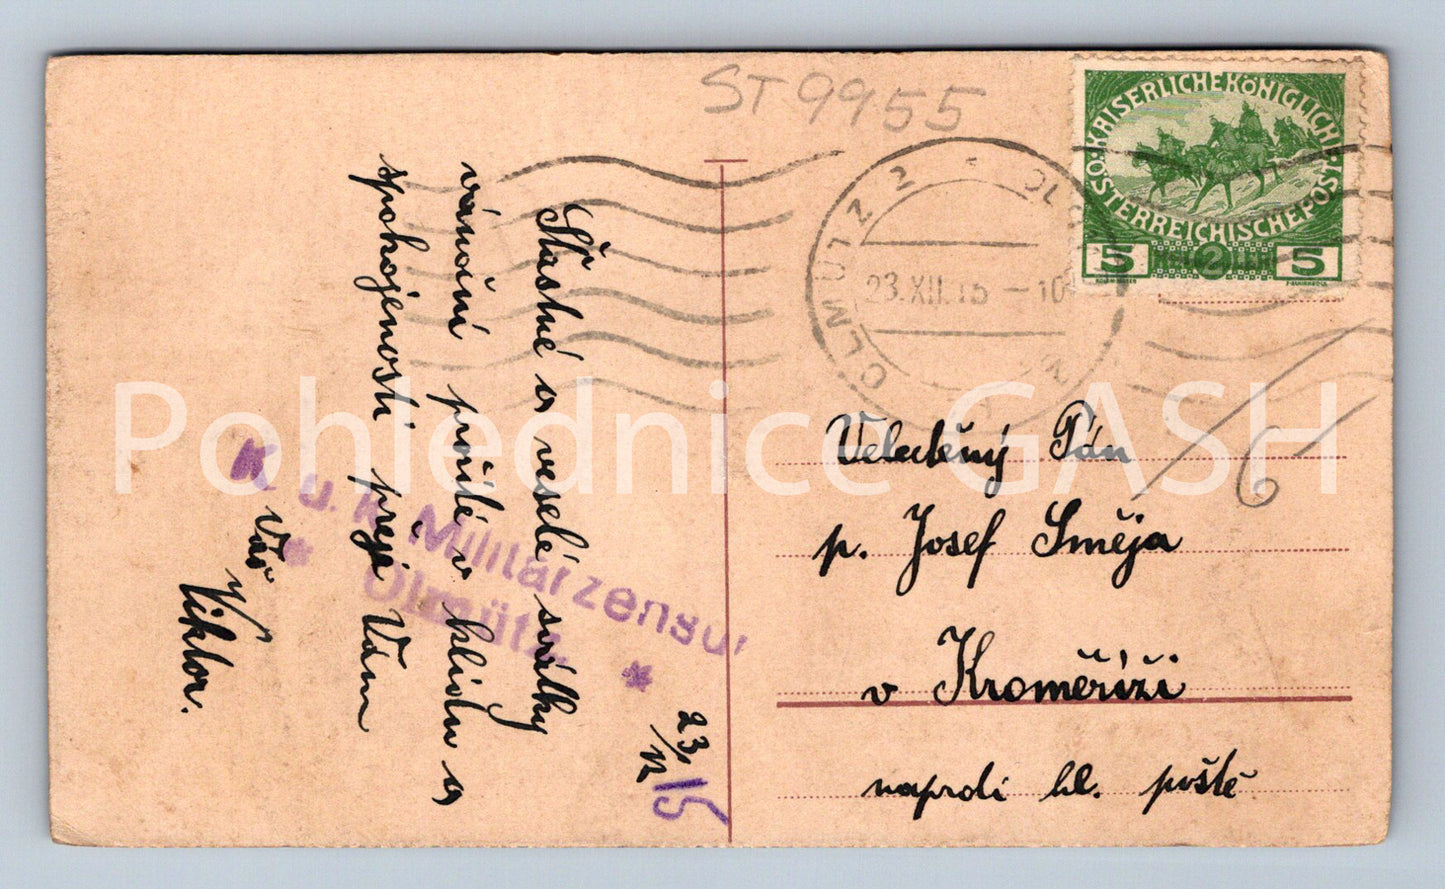 ST 9955
KAISERLICHE KÖNIGLICHE
ÖSTERREICHISCHE POST
5 HELLER 5
2
OLMÜTZ 2 * OL
23.XII.15 – 10
Šťastné a veselé svátky
vánoční prožité v klidu a
spokojenosti přeje Vám
Váš
Viktor.
23/12 15
K. u. k. Militärzensur
* Olmütz. *
Velectěný Pán
p. Josef Směja
v Kroměříži
naproti hl. poště
6
Pohlednice GASH